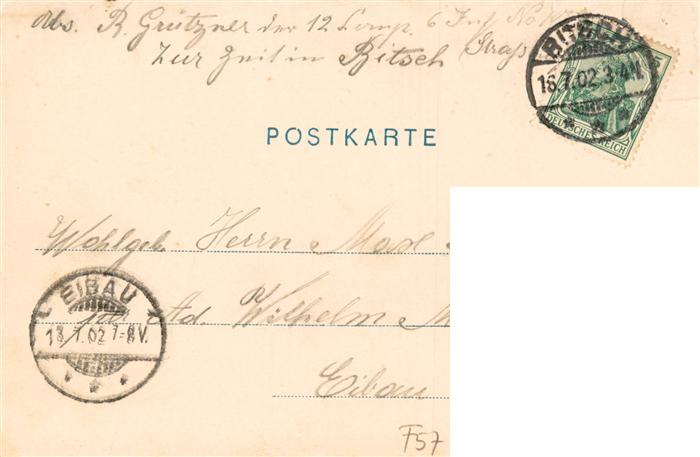 Abs. R. Grützner der 12 Comp. 6 Inf No
Zur Zeit in Bitsch Strass
BITSCH
16.7.02.3-4N.
DEUTSCHES REICH
POSTKARTE
Wohlgeb. Herrn Max
EIBAU
Ad. Wilhelm M
13.7.02 7-8V.
Eibau
F57